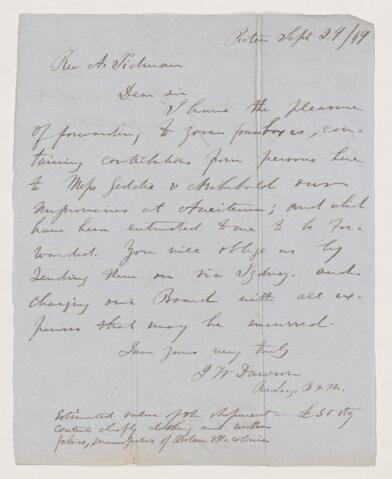 Pictou Sept 29/49
Rev A. Tidman
Dear sir
I have the pleasure
of forwarding to you four boxes, con-
taining contributions from persons here
to Messrs Geddie & Archibald our
Missionaries at Aneiteum; and which
have been entrusted to me to be for-
warded. You will oblige us by
sending them on via Sydney, and
charging our Board with all ex-
penses that may be incurred.
I am yours very truly
J W Dawson
Secy. B F M.
Estimated value of the shipment £50 stg
Contents chiefly clothing and woollen
fabrics, manufacture of